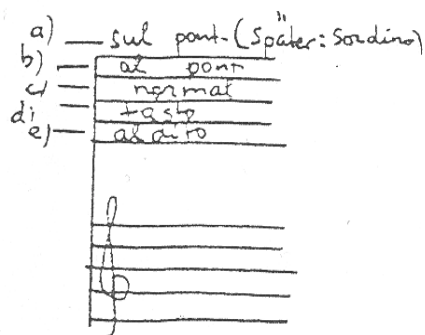 a) — sul pont. (Später: Sordino)
b) — al pont
c) — normal
d) — tasto
e) — al dito